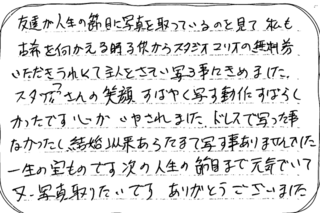 友達が人生の節目に写真を取っているのを見て 私も
古希を向かえる時子供からスタジオマリオの無料券
いただきうれしくて主人とさそい写る事にきめました。
スタッフさんの笑顔 すばやく写す動作 すばらし
かったです 心が いやされました ドレスで写った事
なかったし 結婚以来あらたまて写す事ありませんでした
一生の宝ものです 次の人生の節目まで元気でいて
又 写真取りたいです ありがとうございました